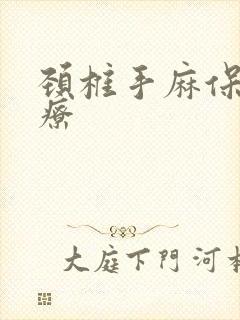 頚柱手麻保
療
大庭下門河村